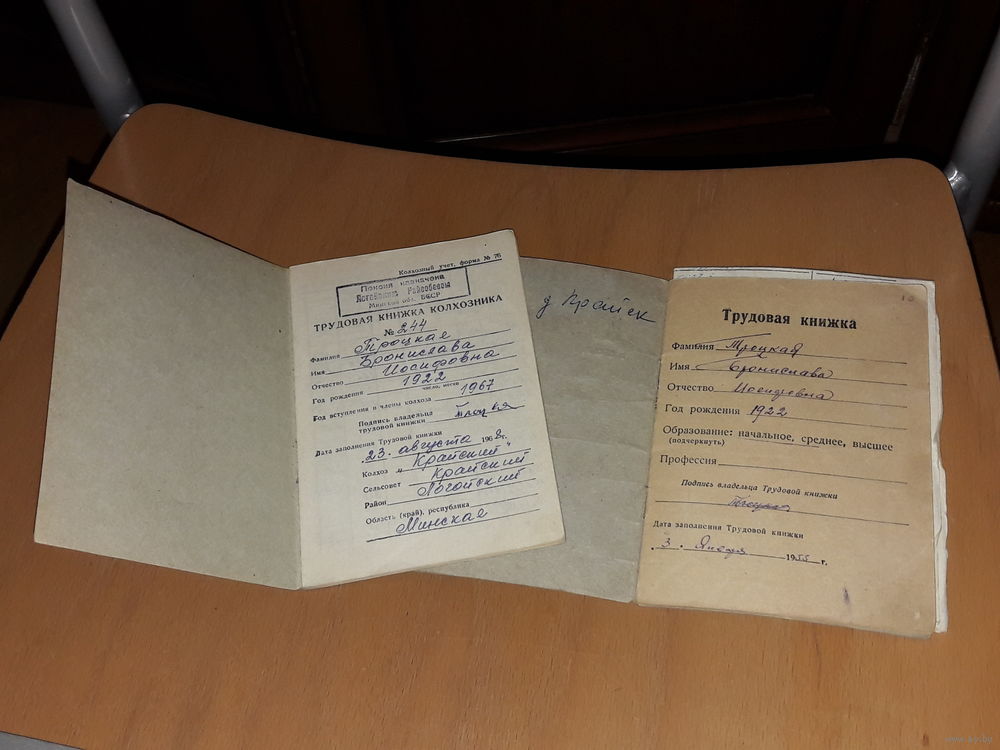 Колхозный учет, форма № 76
Пенсия назначена
Логойским Райсобесом
Минской обл. БССР
ТРУДОВАЯ КНИЖКА КОЛХОЗНИКА
№ 244
Фамилия Троцкая
Имя Бронислава
Отчество Иосифовна
Год рождения 1922
число, месяц
Год вступления в члены колхоза 1967
Подпись владельца
трудовой книжки
Дата заполнения Трудовой книжки
23. августа 1968г.
Колхоз „Крайский"
Сельсовет Крайский
Район Логойский
Область (край), республика
Минская
д Крайск
Трудовая книжка
Фамилия Троцкая
Имя Бронислава
Отчество Иосифовна
Год рождения 1922
Образование: начальное, среднее, высшее
(подчеркнуть)
Профессия
Подпись владельца Трудовой книжки
Дата заполнения Трудовой книжки
3. Января 1955 г.